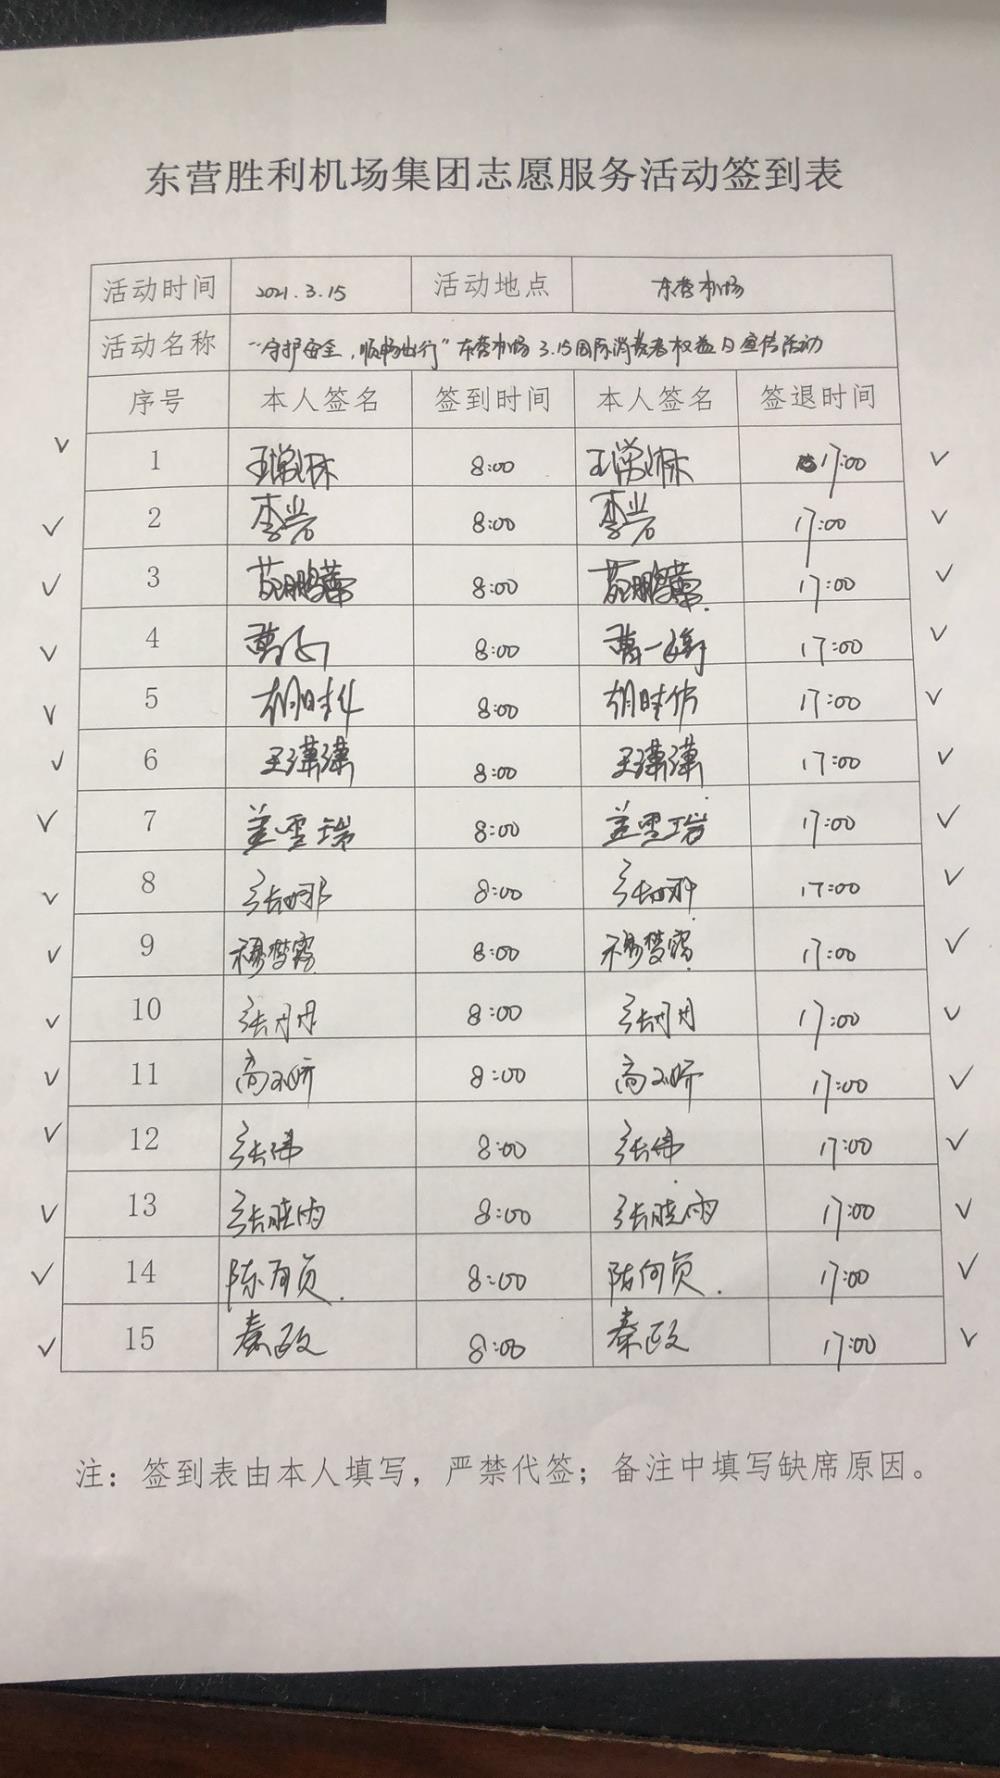 东营胜利机场集团志愿服务活动签到表
活动时间 2021.3.15 活动地点 东营机场
活动名称 “守护安全，顺畅出行”东营机场3.15国际消费者权益日宣传活动
序号 本人签名 签到时间 本人签名 签退时间
1 8:00 17:00
2 李岩 8:00 李岩 17:00
3 8:00 17:00
4 8:00 17:00
5 8:00 17:00
6 王潇潇 8:00 王潇潇 17:00
7 盖雪瑞 8:00 盖雪瑞 17:00
8 张娜 8:00 张娜 17:00
9 穆梦霞 8:00 穆梦霞 17:00
10 张丹丹 8:00 张丹丹 17:00
11 8:00 17:00
12 张伟 8:00 张伟 17:00
13 张晓雨 8:00 张晓雨 17:00
14 8:00 17:00
15 秦政 8:00 秦政 17:00
注：签到表由本人填写，严禁代签；备注中填写缺席原因。